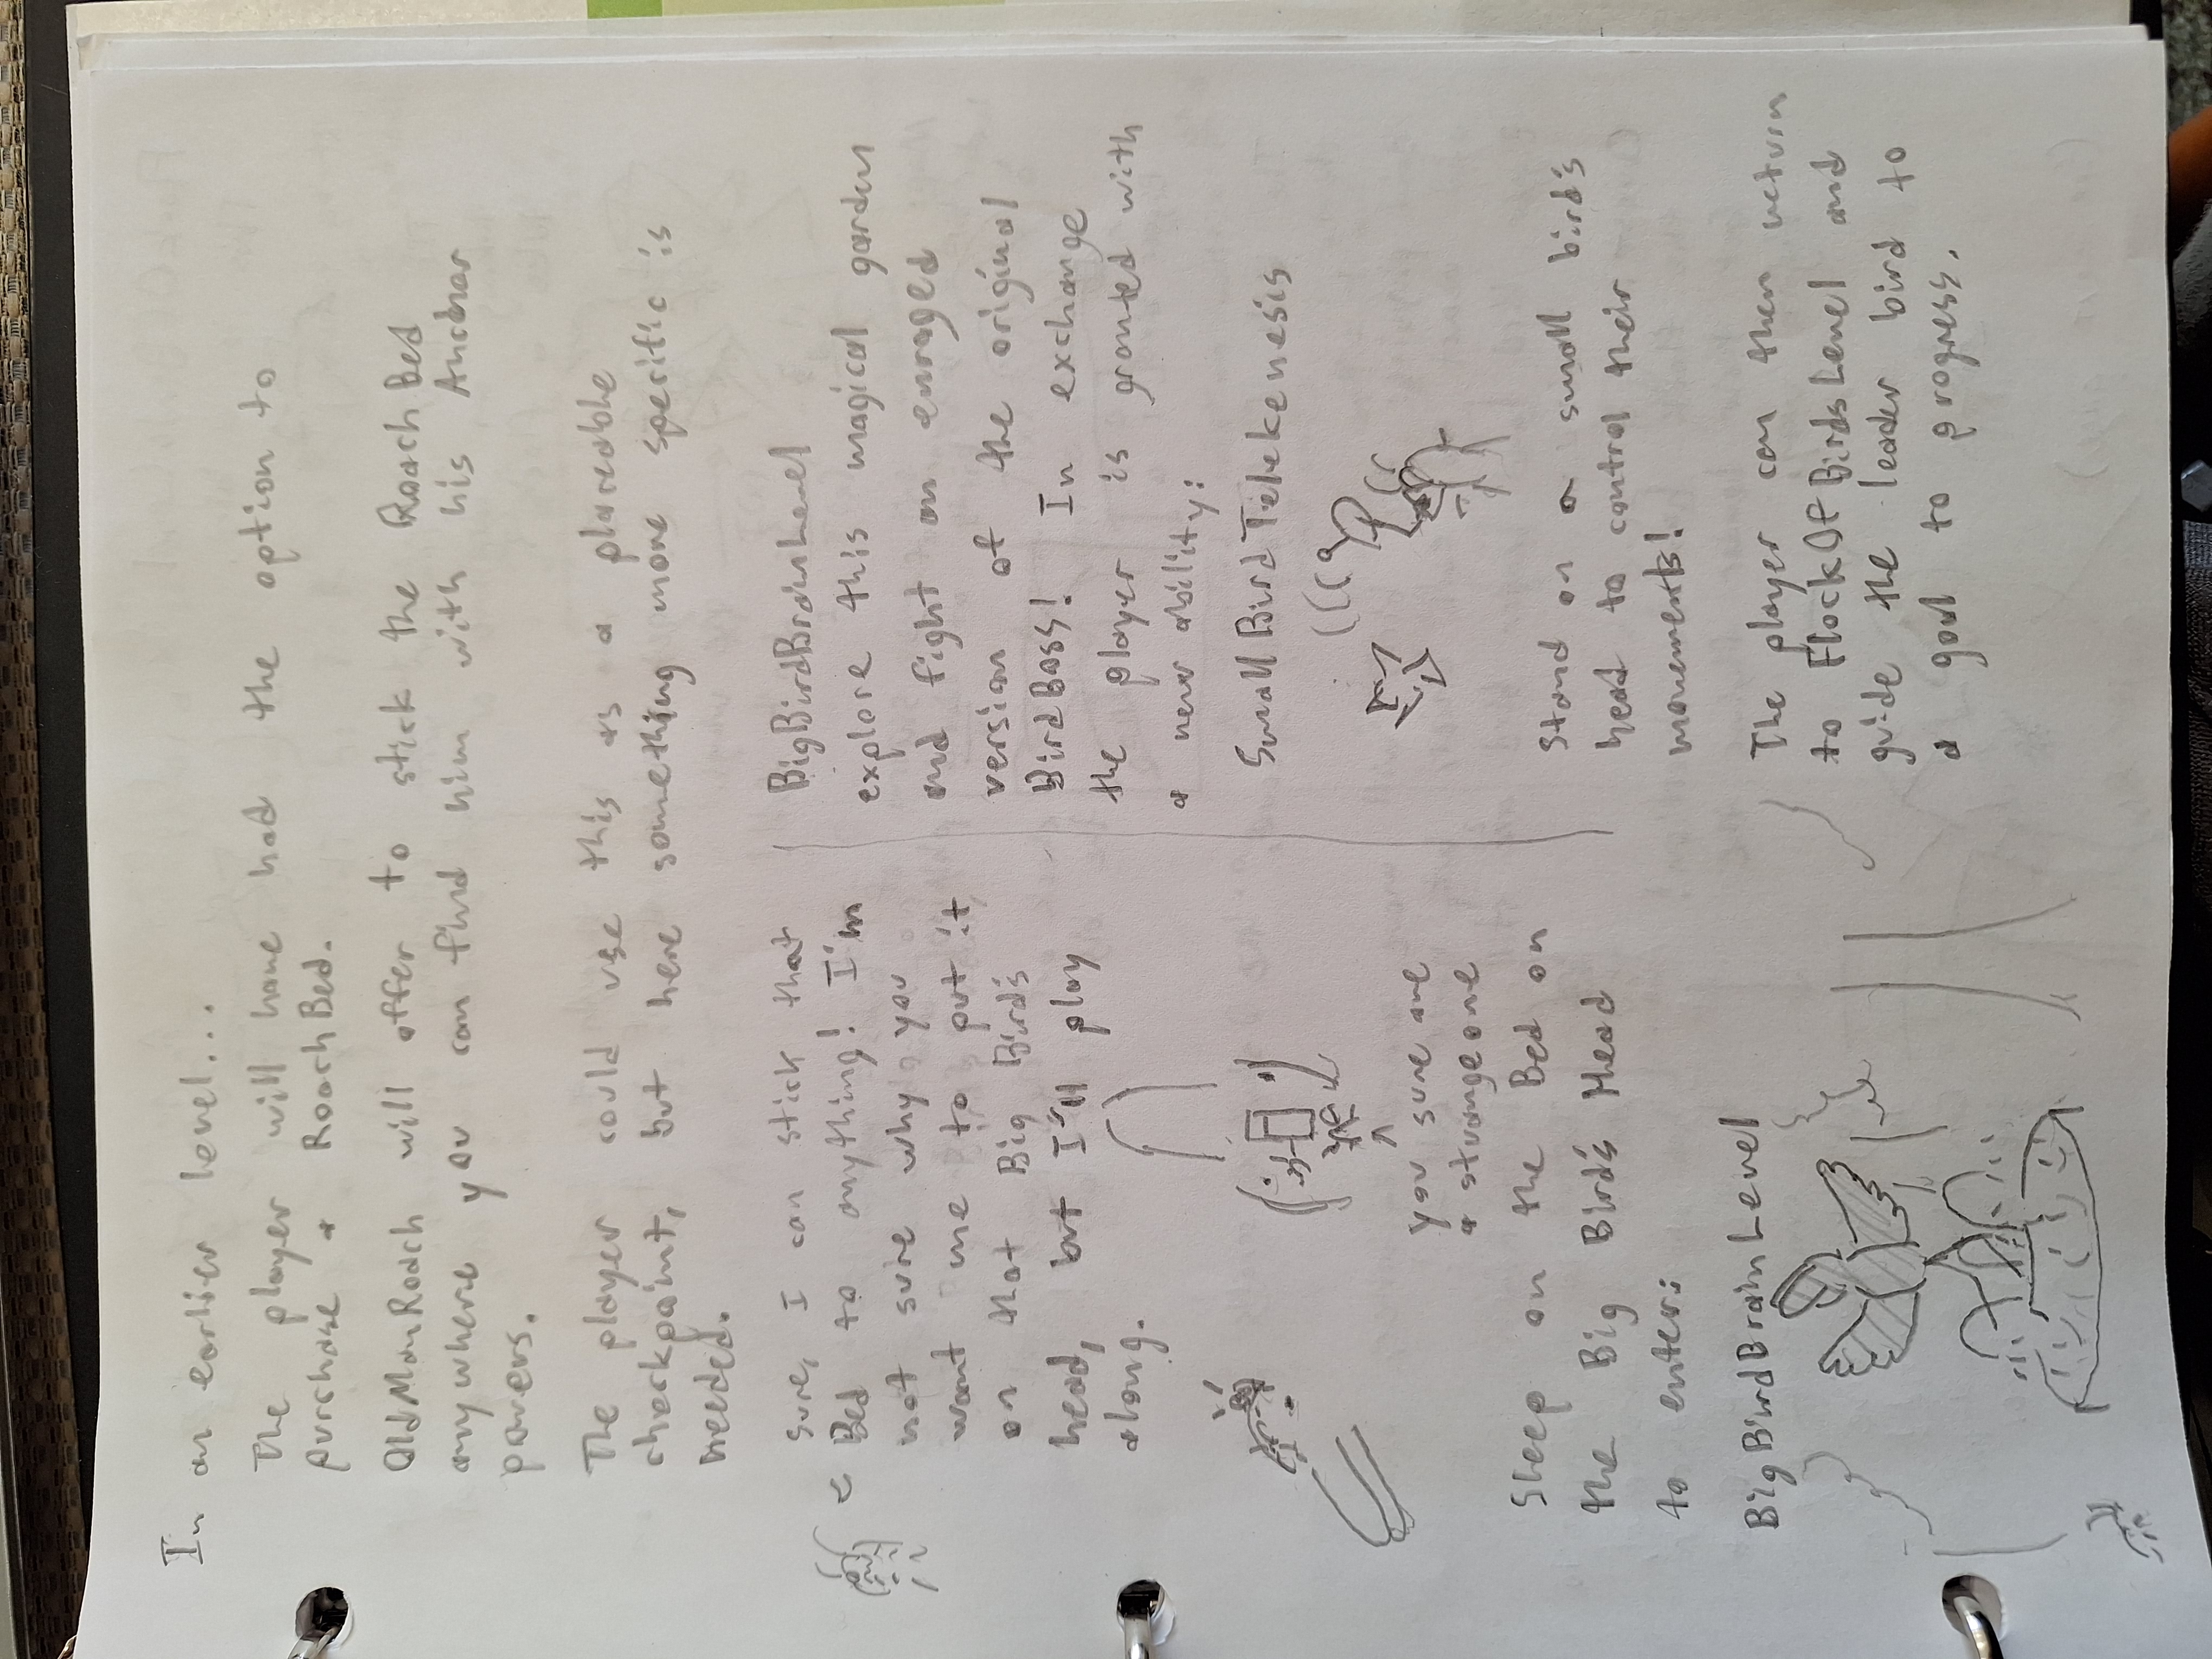 In an earlier level...
The player will have had the option to
purchase a RoachBed.
OldManRoach will offer to stick the RoachBed
anywhere you can find him with his Anchor
powers.
The player could use this as a placeable
checkpoint, but here something more specific is
needed.
Sure, I can stick that
Bed to anything! I'm
not sure why you
want me to put it
on that Big Bird's
head, but I'll play
along.
you sure are
a strange one
Sleep on the Bed on
the Big Bird's Head
to enter:
BigBirdBrainLevel
BigBirdBrainLevel
explore this magical garden
and fight an enraged
version of the original
BirdBoss! In exchange
the player is granted with
a new ability:
SmallBirdTelekenesis
Stand on a small bird's
head to control their
movements!
The player can then return
to FlockOfBirdsLevel and
guide the leader bird to
a goal to progress.